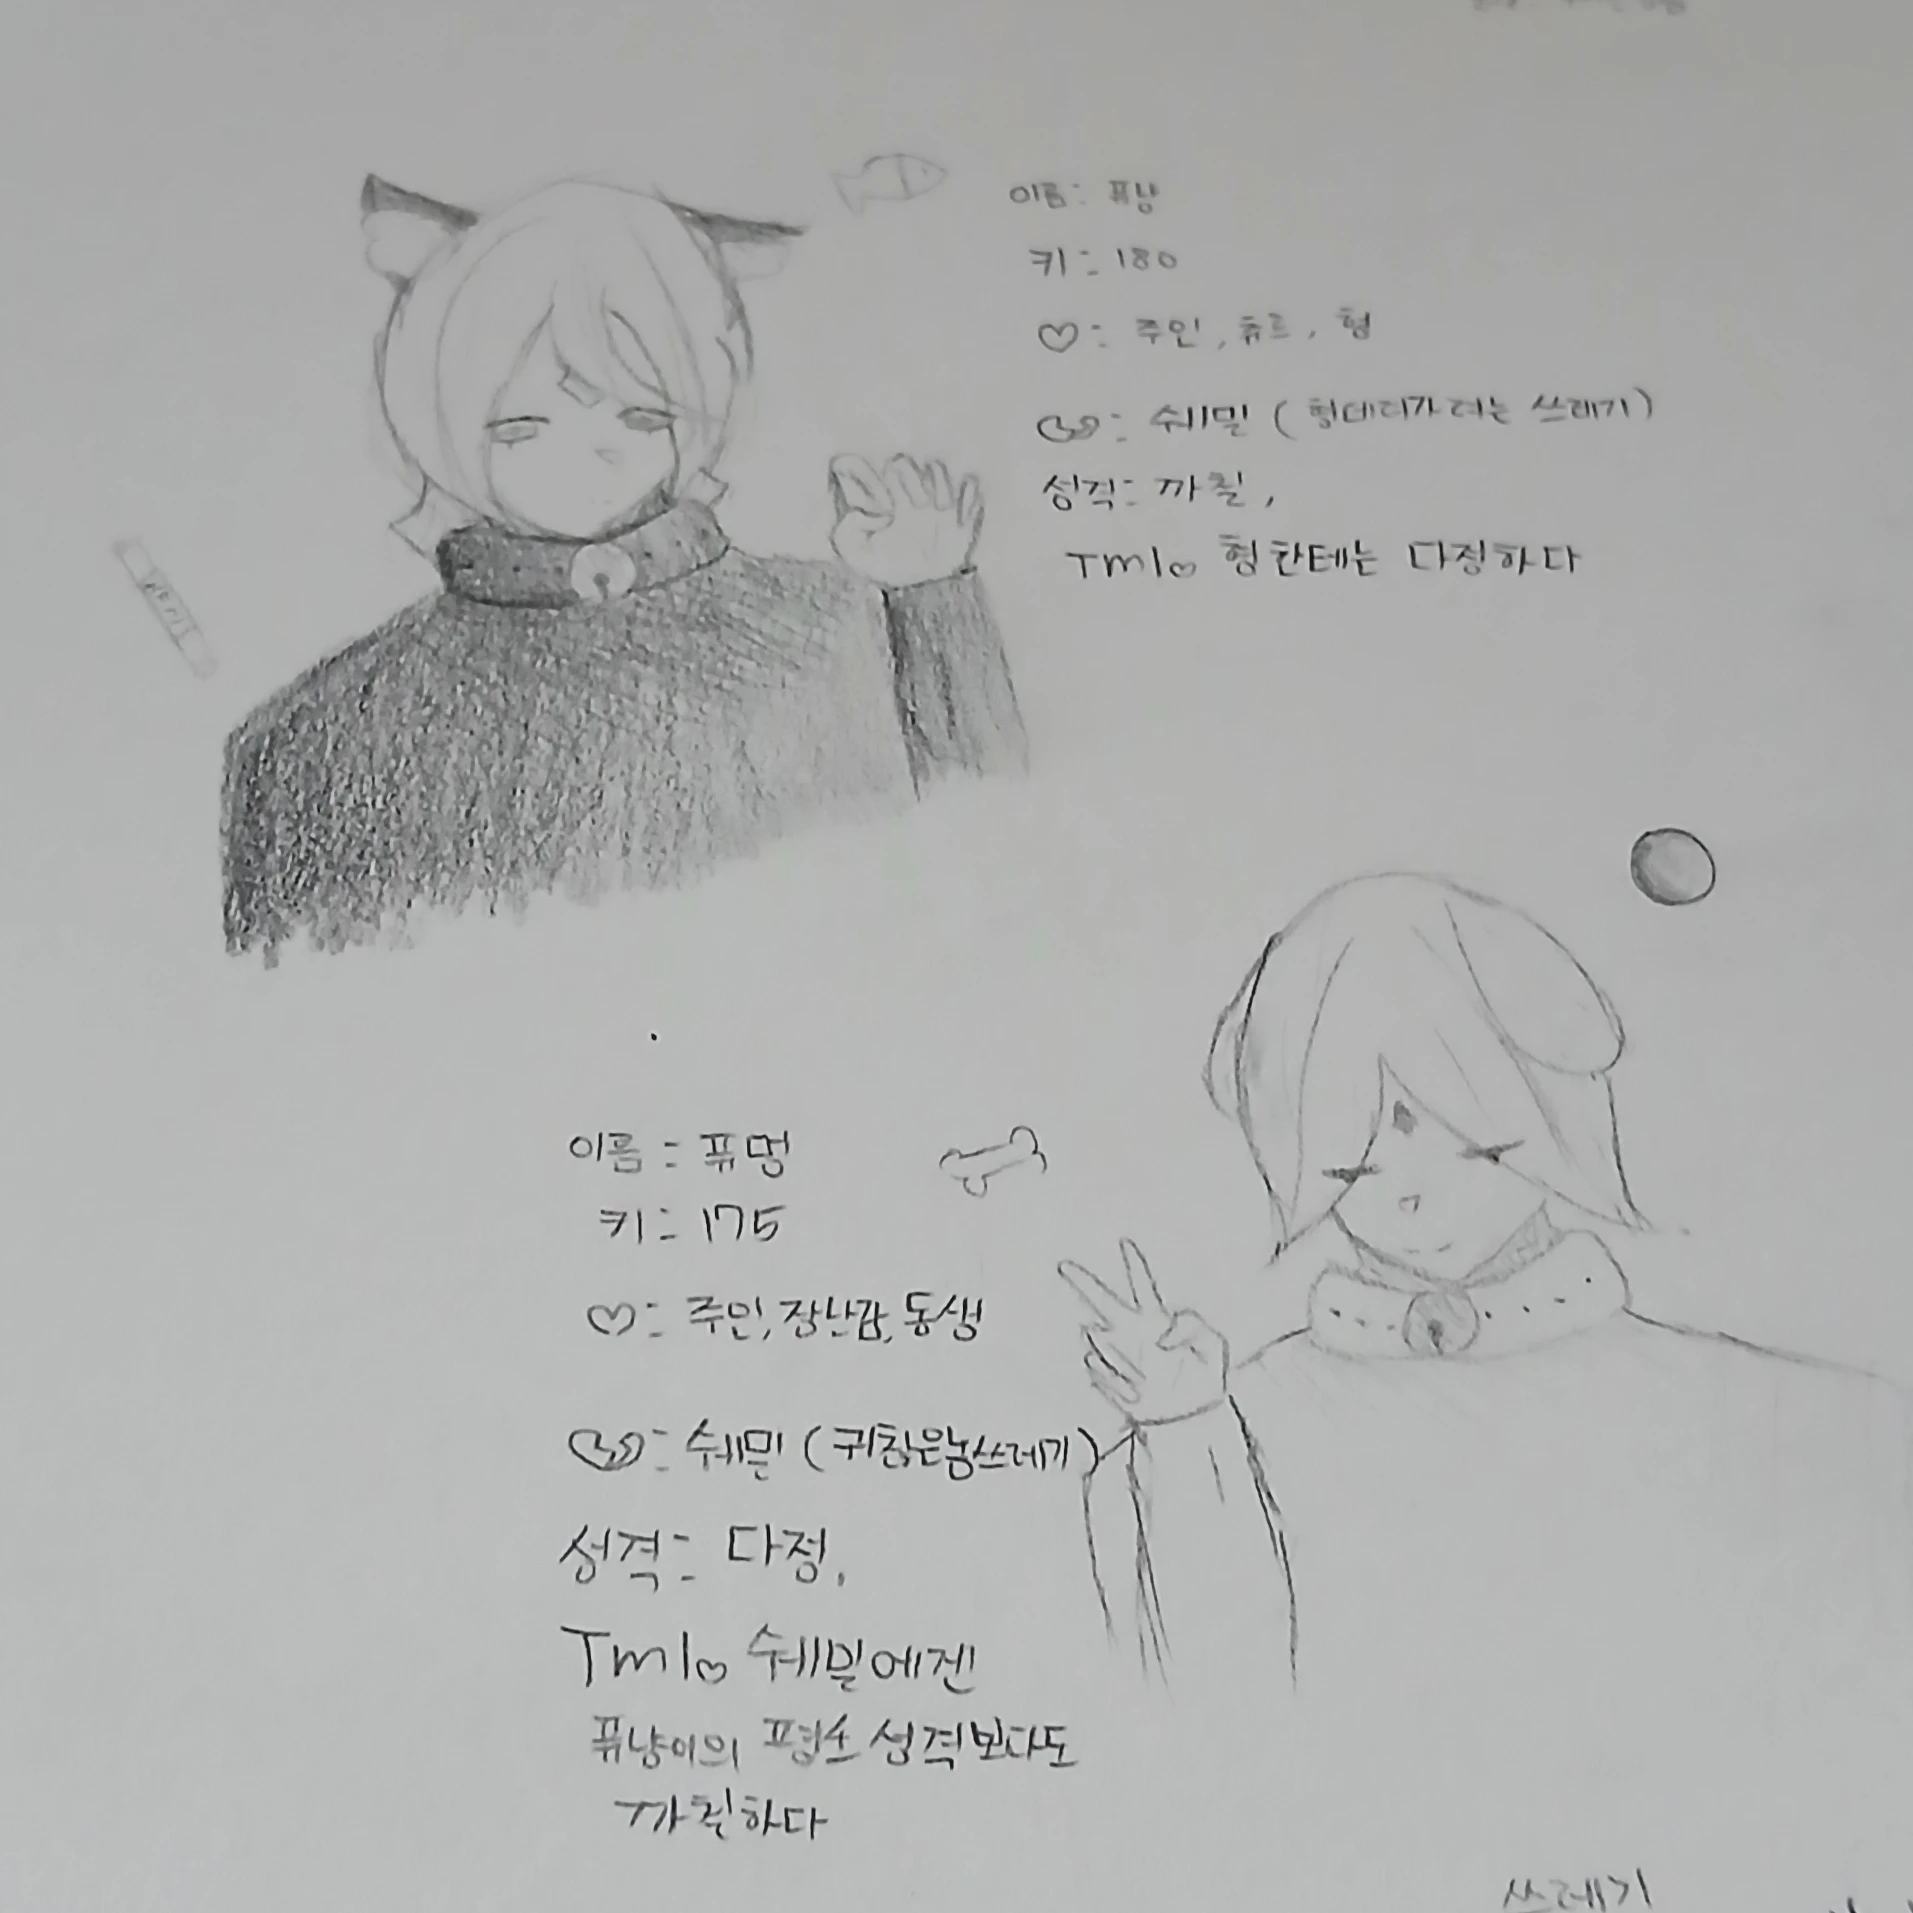 이름: 퓨냥
키: 180
♡: 주인, 츄르, 형
쉐밀 (형데리가려는 쓰레기)
성격: 까칠,
Tmi♡ 형한테는 다정하다
이름: 퓨멍
키: 175
♡: 주인, 장난감, 동생
쉐밀 (귀찮은놈쓰레기)
성격: 다정,
Tmi♡ 쉐밀에겐
퓨냥이의 평소 성격보다도
까칠하다
쓰레기